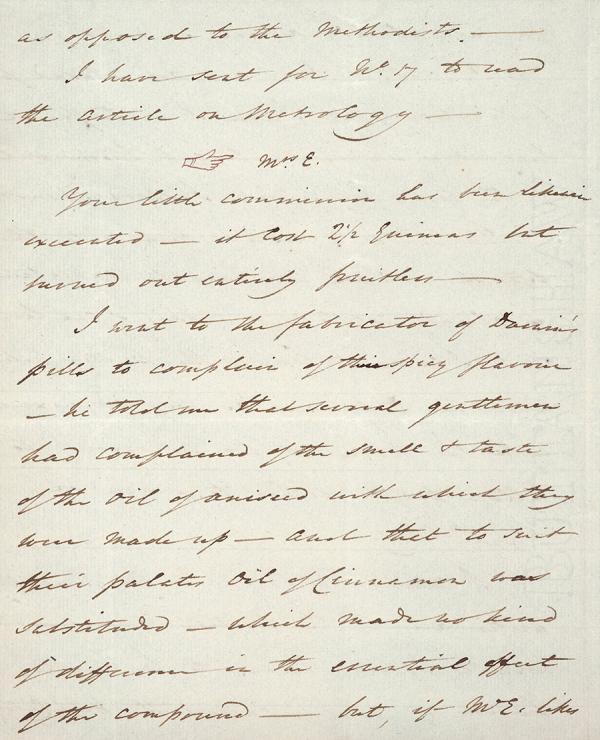 as opposed to the Methodists. —
I have sent for No. 17 to read
the article on Metrology —
☞ Mrs E.
Your little commission has been likewise
executed — it cost 2 1/2 Guineas but
turned out entirely fruitless —
I went to the fabricator of Darwin's
pills to complain of their spicy flavour
— he told me that several gentlemen
had complained of the smell & taste
of the oil of aniseed with which they
were made up — and that to suit
their palates oil of Cinnamon was
substituted — which made no kind
of difference in the essential effect
of the compound — but, if Mr E. likes